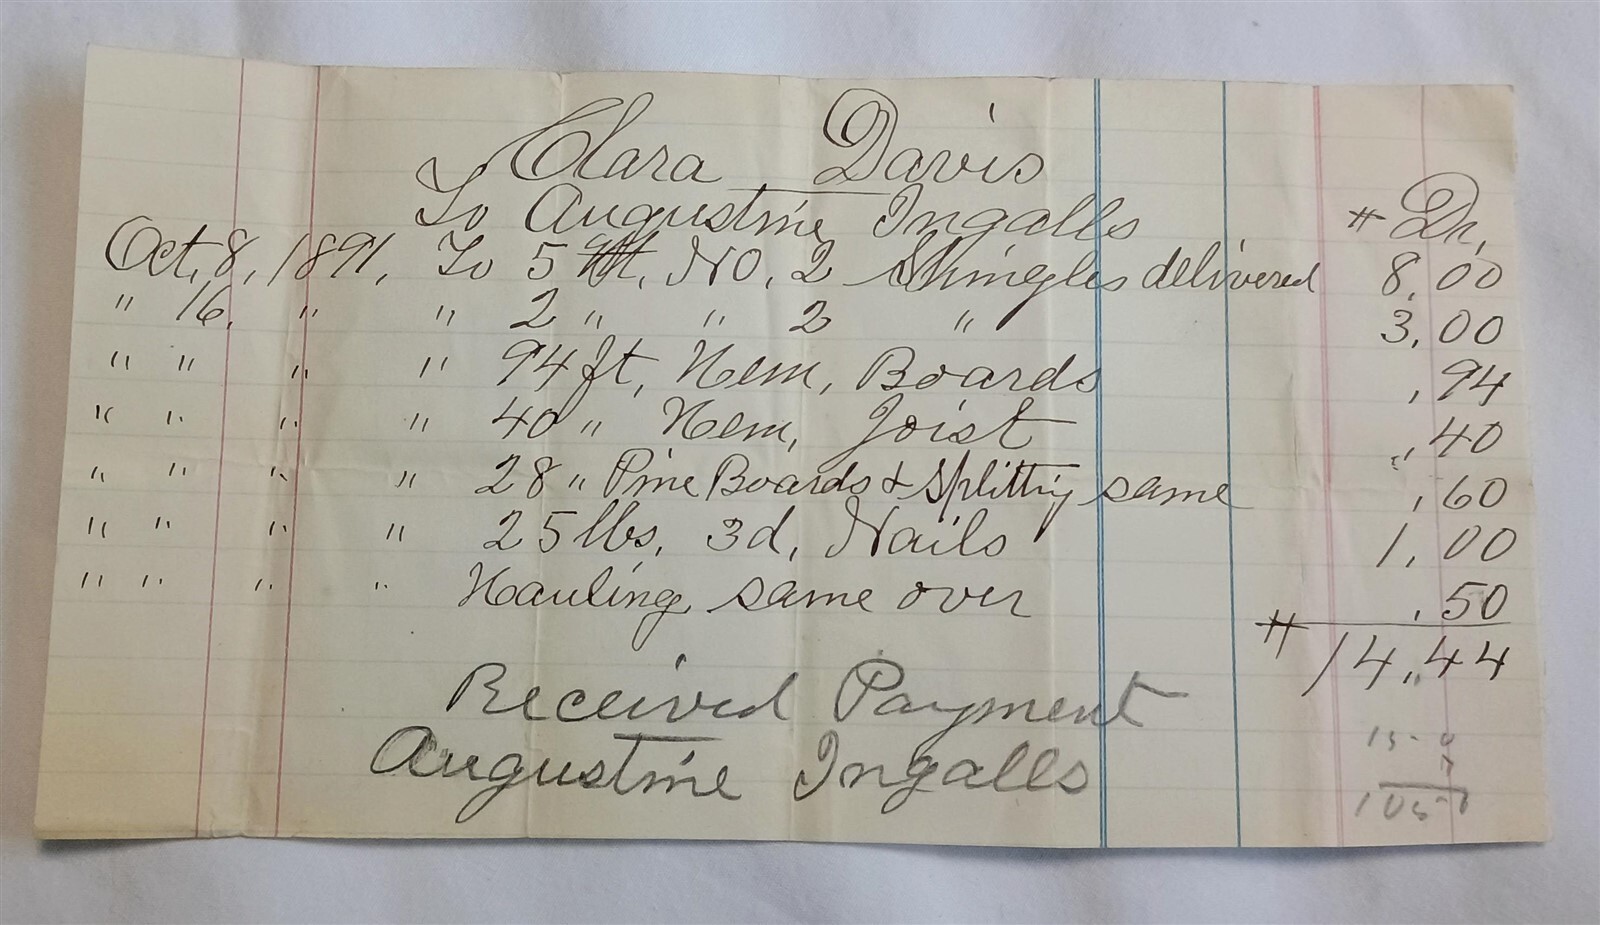 Clara Davis
To Augustine Ingalls # Dr,
Oct, 8, 1891, To 5 M, No, 2 Shingles delivered 8,00
" 16, " " 2 " " 2 " 3,00
" " " " 94 ft, Hem, Boards ,94
" " " " 40 " Hem, Joist ,40
" " " " 28 " Pine Boards & Splitting same ,60
" " " " 25 lbs, 3d, Nails 1,00
" " " " Hauling same over ,50
# 14,44
Received Payment
Augustine Ingalls